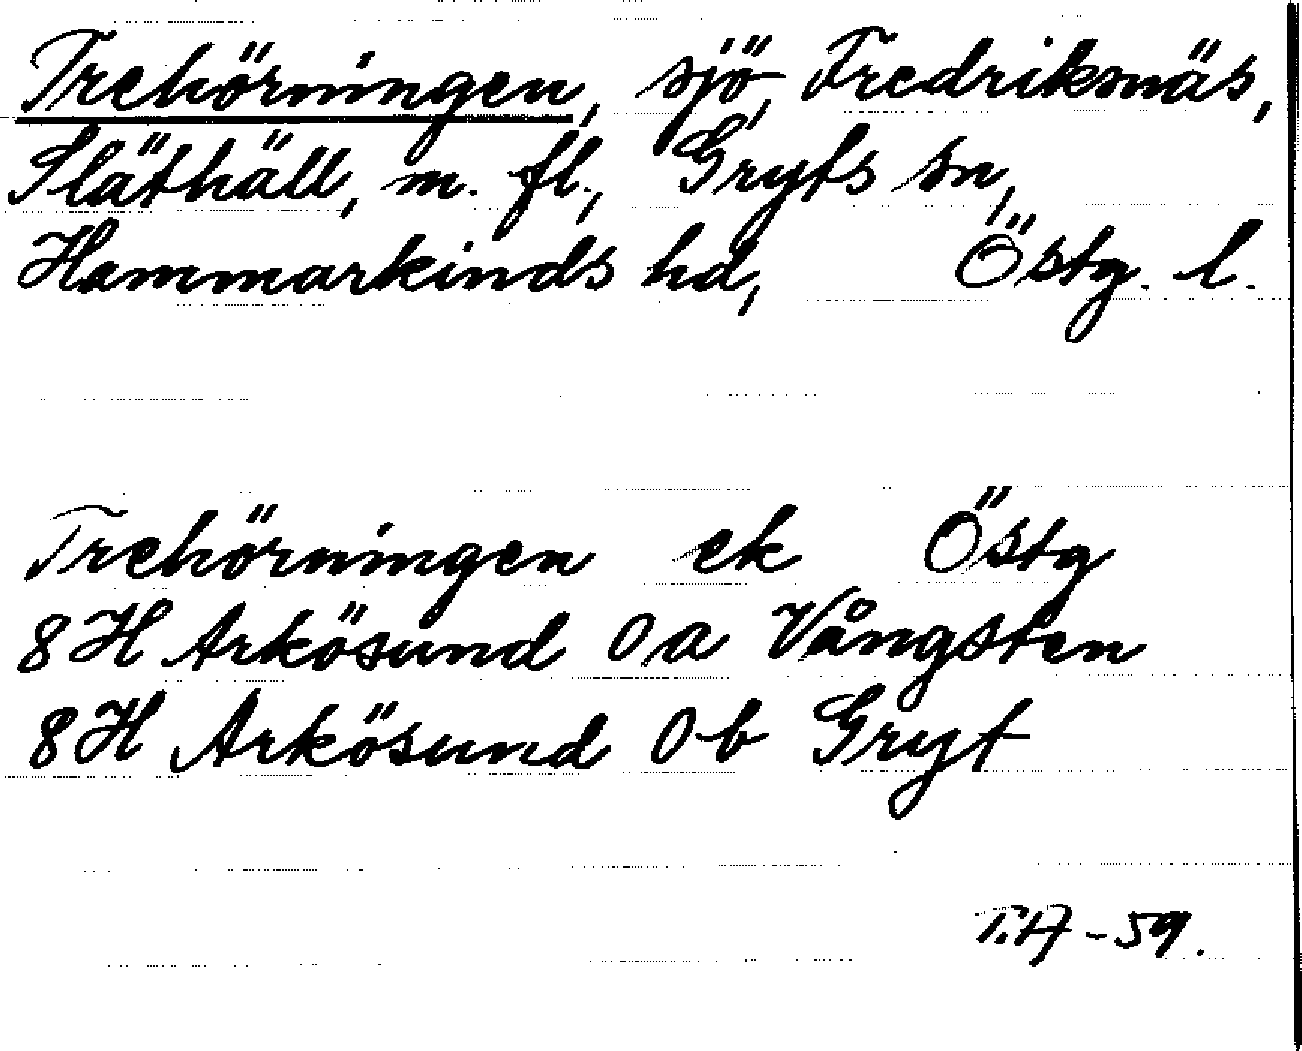 Trehörningen, sjö, Fredriksnäs,
Släthäll, m. fl., Gryts sn,
Hammarkinds hd, Östg. l.
Trehörningen ek Östg
8H Arkösund 0a Vångsten
8H Arkösund 0b Gryt
T.H-59.